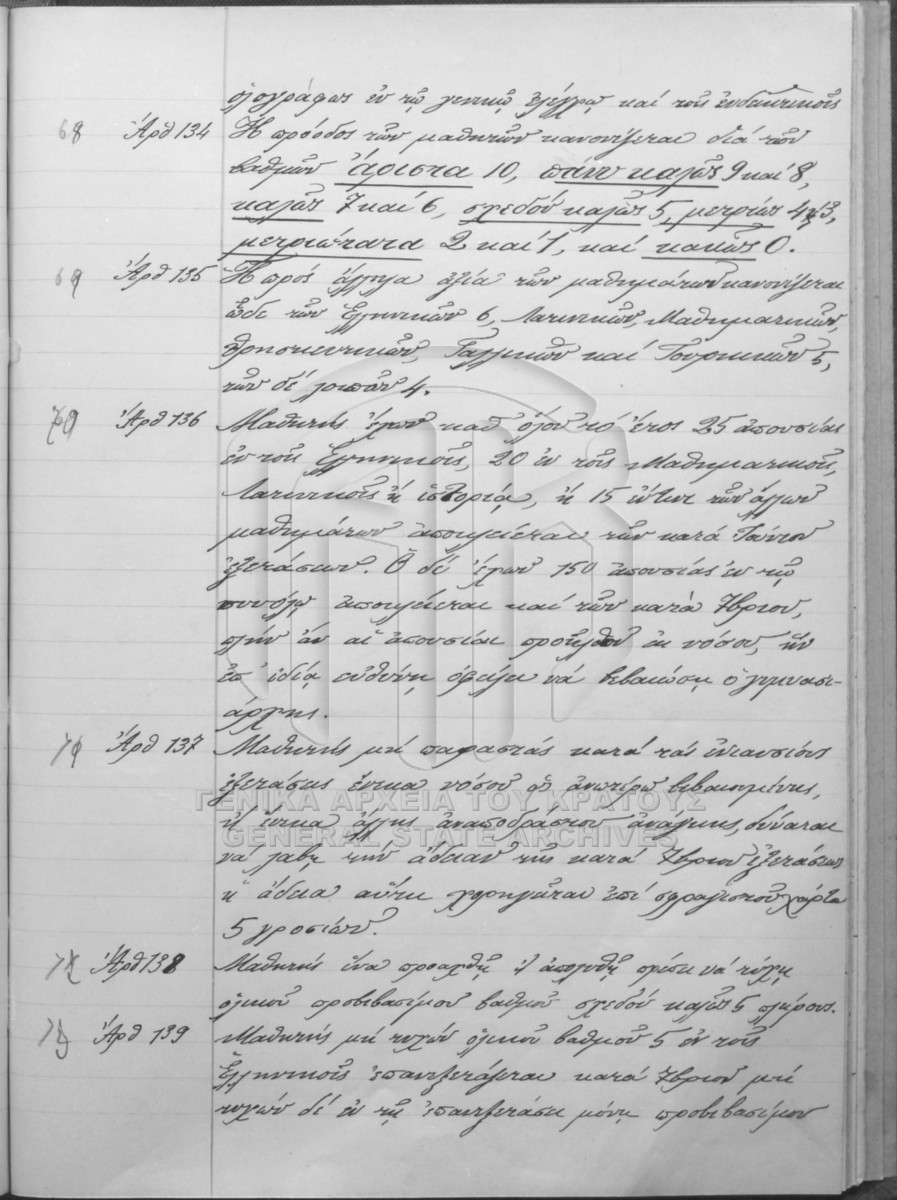 ὁλογράφως ἐν τῷ γενικῷ ἐλέγχῳ καὶ τοῖς ἐνδεικτικοῖς
68 Ἄρθ 134 Ἡ πρόοδος τῶν μαθητῶν κανονίζεται διὰ τῶν
βαθμῶν ἄριστα 10, πάνυ καλῶς 9 καὶ 8,
καλῶς 7 καὶ 6, σχεδὸν καλῶς 5, μετρίως 4 ἢ 3,
μετριώτατα 2 καὶ 1, καὶ κακῶς 0.
69 Ἄρθ 135 Ἡ πρὸς ἄλληλα ἀξία τῶν μαθημάτων κανονίζεται
ὧδε τῶν Ἑλληνικῶν 6, Λατινικῶν, Μαθηματικῶν,
θρησκευτικῶν, Γαλλικῶν καὶ Τουρκικῶν 5,
τῶν δὲ λοιπῶν 4.
70 Ἄρθ 136 Μαθητὴς ἔχων καθ' ὅλον τὸ ἔτος 25 ἀπουσίας
ἐν τοῖς Ἑλληνικοῖς, 20 ἐν τοῖς Μαθηματικοῖς,
Λατινικοῖς ἢ ἱστορίᾳ, ἢ 15 ἔν τινι τῶν ἄλλων
μαθημάτων ἀποκλείεται τῶν κατὰ Ἰούνιον
ἐξετάσεων. Ὁ δὲ ἔχων 150 ἀπουσίας ἐν τῷ
συνόλῳ ἀποκλείεται καὶ τῶν κατὰ 7βριον,
πλὴν ἂν αἱ ἀπουσίαι προῆλθον ἐκ νόσου, ἣν
ἐπ' ἰδίᾳ εὐθύνῃ ὀφείλει νὰ βεβαιώσῃ ὁ γυμνασι-
άρχης.
71 Ἄρθ 137 Μαθητὴς μὴ παραστὰς κατὰ τὰς ἐνιαυσίους
ἐξετάσεις ἕνεκα νόσου ὡς ἀνωτέρω βεβαιουμένης,
ἢ ἕνεκα ἄλλης ἀναποδράστου ἀνάγκης, δύναται
νὰ λάβῃ τὴν ἄδειαν τῆς κατὰ 7βριον ἐξετάσεως
ἡ ἄδεια αὕτη χορηγεῖται ἐπὶ σφραγιστοῦ χάρτου
5 γροσίων.
72 Ἄρθ 138 Μαθητὴς ἵνα προαχθῇ ἢ ἀπολυθῇ πρέπει νὰ τύχῃ
ὁλικοῦ προβιβασίμου βαθμοῦ σχεδὸν καλῶς 5 πλήρους.
73 Ἄρθ 139 Μαθητὴς μὴ τυχὼν ὁλικοῦ βαθμοῦ 5 ἐν τοῖς
Ἑλληνικοῖς ἐπανεξετάζεται κατὰ 7βριον μὴ
τυχὼν δὲ ἐν τῇ ἐπανεξετάσει μόνῃ προβιβασίμου
ΓΕΝΙΚΑ ΑΡΧΕΙΑ ΤΟΥ ΚΡΑΤΟΥΣ
GENERAL STATE ARCHIVES